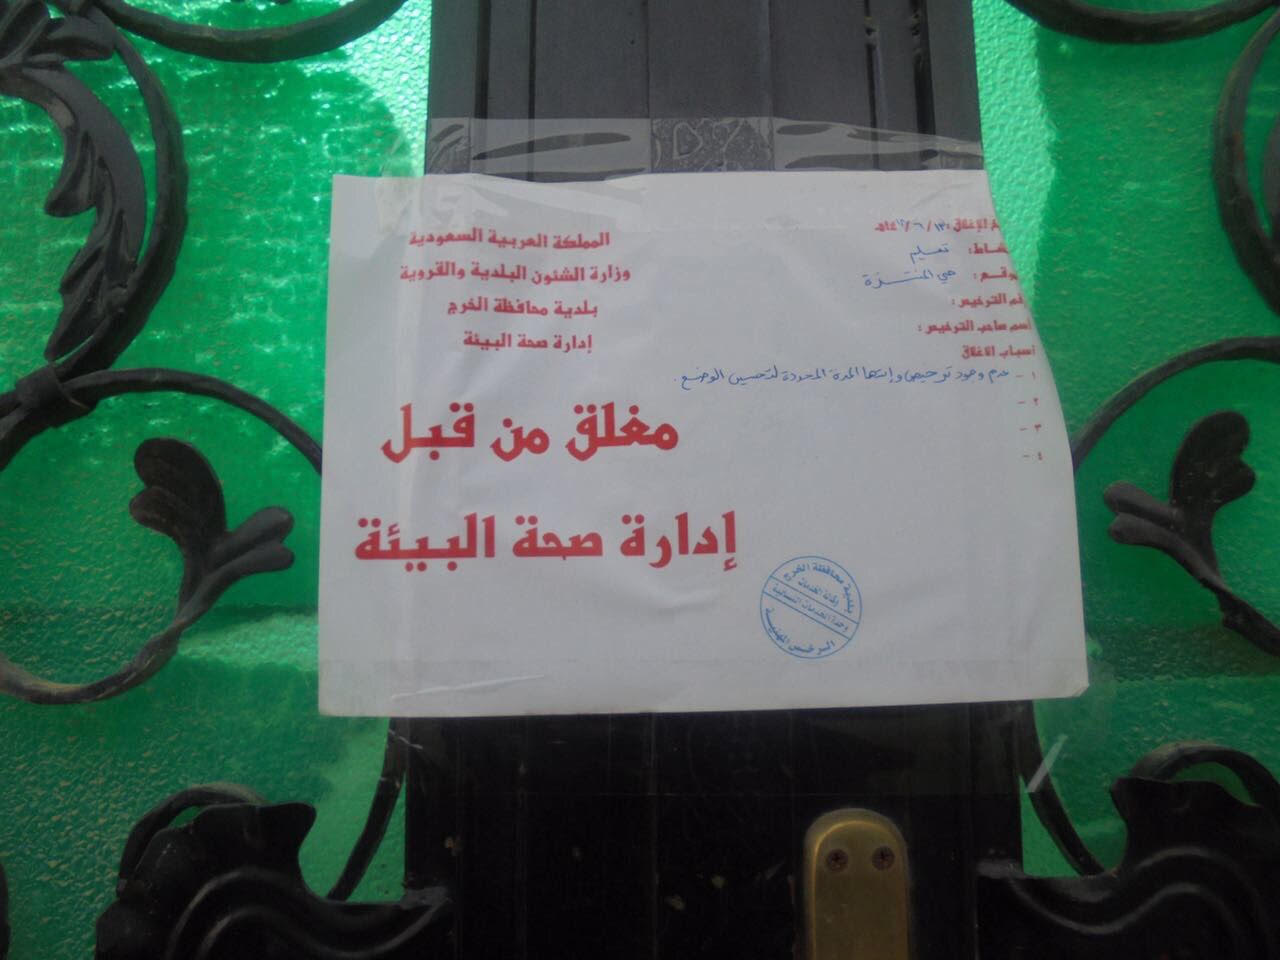 المملكة العربية السعودية
وزارة الشئون البلدية والقروية
بلدية محافظة الخرج
إدارة صحة البيئة
الإغلاق :
تعليم
حي المنتزة
الترخيص :
اسم صاحب الترخيص :
أسباب الاغلاق
١ - عدم وجود ترخيص وإنتها المدة المحددة لتحسين الوضع .
٢ -
٣ -
٤ -
مغلق من قبل
إدارة صحة البيئة
بلدية محافظة الخرج
وكالة الخدمات
وحدة الخدمات النسائية
الرخص المهنية